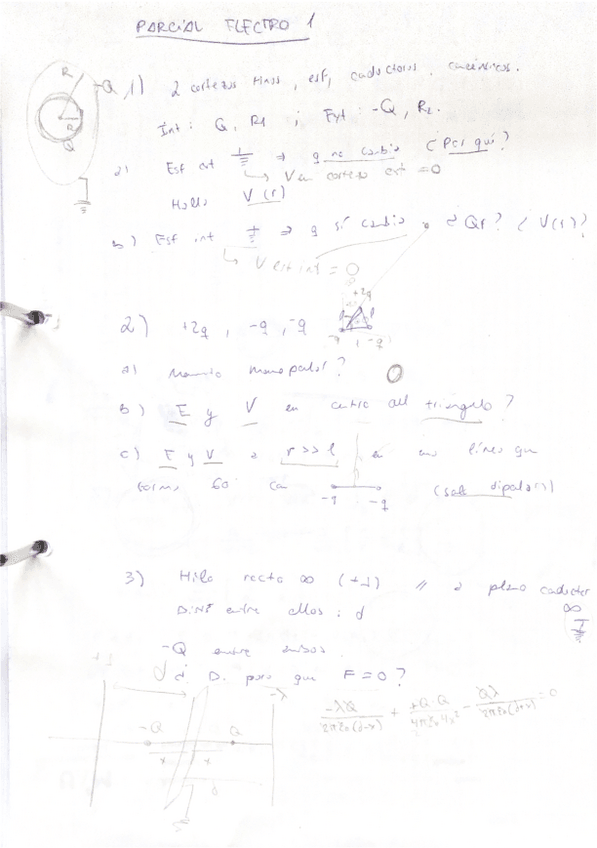 PARCIAL ELECTRO 1
R
-Q
R1
Q
1) 2 cortezas finas, esf, conductoras, concéntricas.
Int: Q, R1 ; Ext: -Q, R2.
a) Esf ext ⏚ ⇒ q no cambia ¿Por qué?
↳ V en corteza ext = 0
Hallo V(r)
b) Esf int ⏚ ⇒ q sí cambia ¿Qf? ¿V(r)?
↳ V esf int = 0
2) +2q, -q, -q
+2q
-q -q
a) Momento monopolar? 0
b) E y V en centro del triángulo?
c) E y V a r >> l en una línea que
forma 60 con
-q -q
(sale dipolar)
3) Hilo recto ∞ (+λ) // a plano conductor ∞
Dist entre ellos: d
-Q entre ambos.
¿ D. para que F=0?
+λ
d
-λ
-Q
Q
x x
d
-λQ/2πε₀(d-x) + +Q·Q/4πε₀4x² - Qλ/2πε₀(d+x) = 0